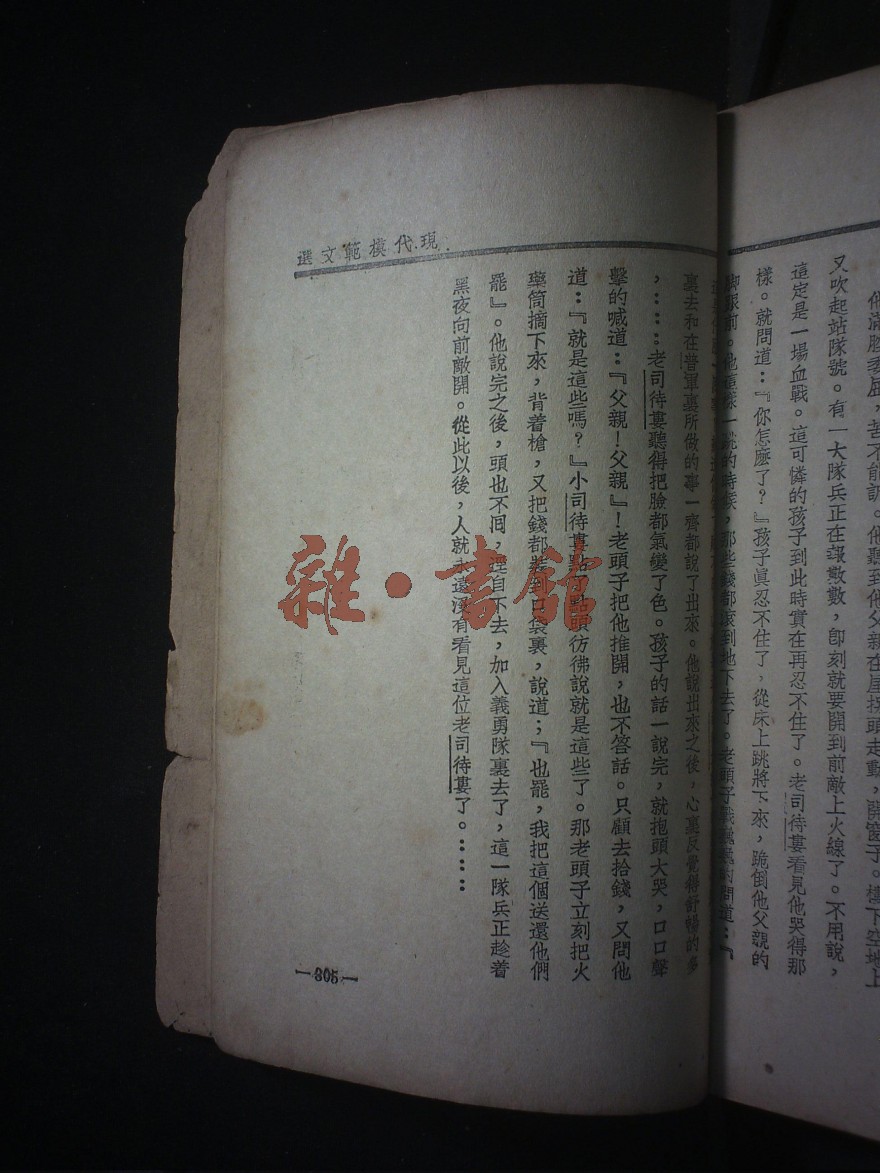 現代模範文選
他滿腹委屈，苦不能訴。他聽到他父親在屋拐頭走動，開窗子。樓下空地上
又吹起站隊號。有一大隊兵正在報數數，卽刻就要開到前敵上火線了。不用說，
這定是一場血戰。這可憐的孩子到此時實在再忍不住了。老司待婁看見他哭得那
樣。就問道：『你怎麽了？』孩子眞忍不住了，從床上跳將下來，跪倒他父親的
脚跟前。他這樣一跳的時候，那些錢都滾到地下去了。老頭子戰 的問道：『
裏去和在普軍裏所做的事一齊都說了出來。他說出來之後，心裏反覺得舒暢的多
，……老司待婁聽得把臉都氣變了色。孩子的話一說完，就抱頭大哭，口口聲
聲的喊道：『父親！父親』！老頭子把他推開，也不答話。只顧去拾錢，又問他
道：『就是這些嗎？』小司待婁點了點頭彷彿說就是這些了。那老頭子立刻把火
藥筒摘下來，背着槍，又把錢都裝到口袋裏，說道；『也罷，我把這個送還他們
罷』。他說完之後，頭也不囘，逕自下去，加入義勇隊裏去了，這一隊兵正趁着
黑夜向前敵開。從此以後，人就永遠沒有看見這位老司待婁了。……
—305—
雜·書館